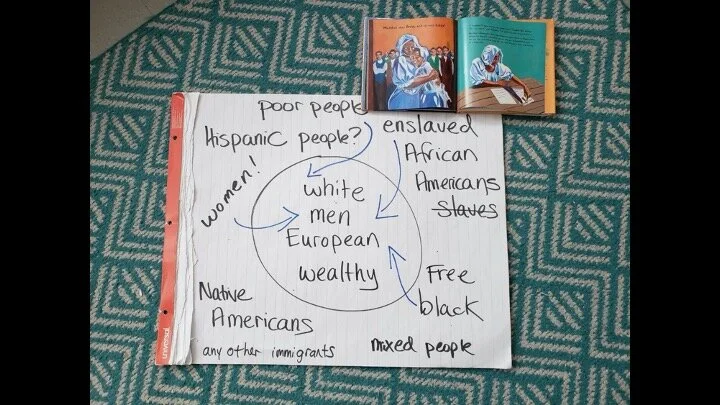 poor people
Hispanic people?
women!
enslaved
African
Americans
Slaves
white
men
European
wealthy
Native
Americans
Free
black
any other immigrants
mixed people
universal